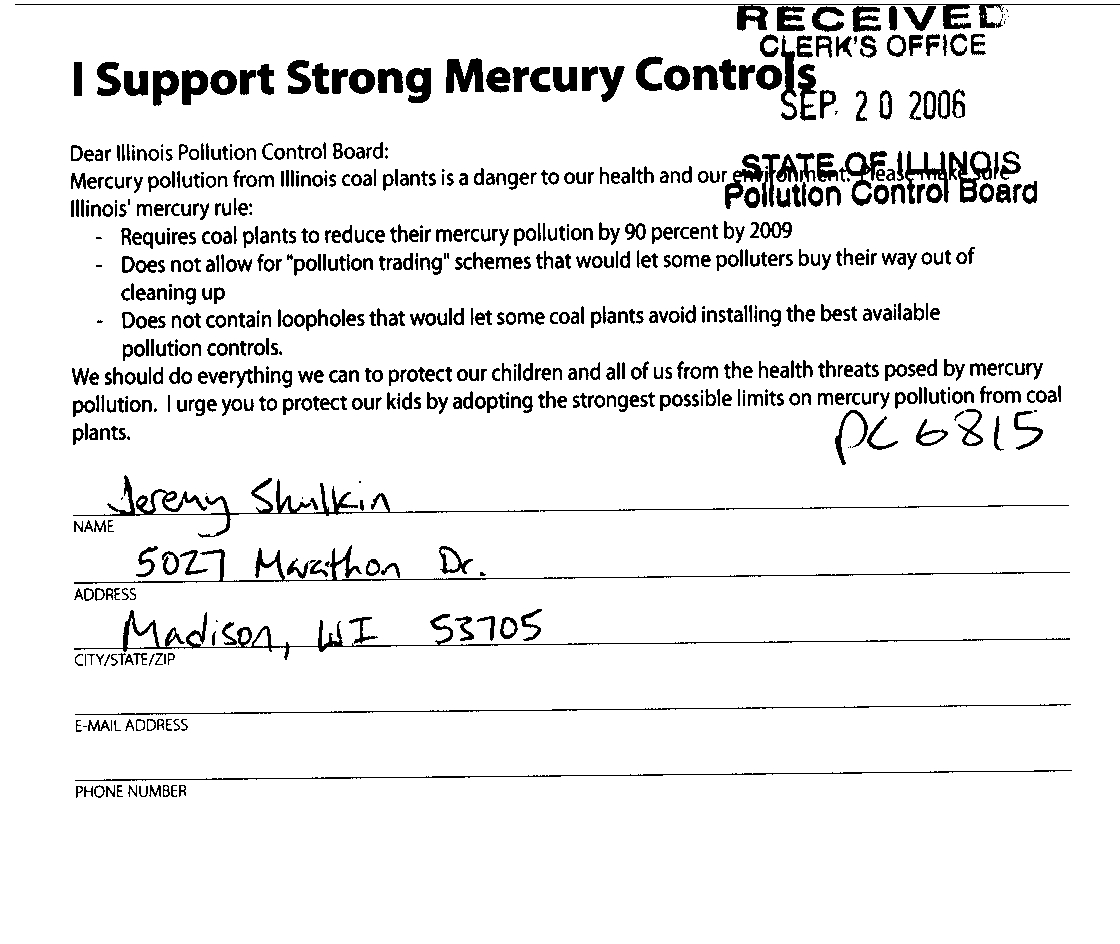 RECEIVED
CLERK'S OFFICE
I Support Strong Mercury Controls
SEP. 20 2006
Dear Illinois Pollution Control Board:
STATE OF ILLINOIS
Mercury pollution from Illinois coal plants is a danger to our health and our environment. Please make sure
Pollution Control Board
Illinois' mercury rule:
- Requires coal plants to reduce their mercury pollution by 90 percent by 2009
- Does not allow for "pollution trading" schemes that would let some polluters buy their way out of
cleaning up
- Does not contain loopholes that would let some coal plants avoid installing the best available
pollution controls.
We should do everything we can to protect our children and all of us from the health threats posed by mercury
pollution. I urge you to protect our kids by adopting the strongest possible limits on mercury pollution from coal
plants.
PC 6815
Jeremy Shulkin
NAME
5027 Marathon Dr.
ADDRESS
Madison, WI 53705
CITY/STATE/ZIP
E-MAIL ADDRESS
PHONE NUMBER